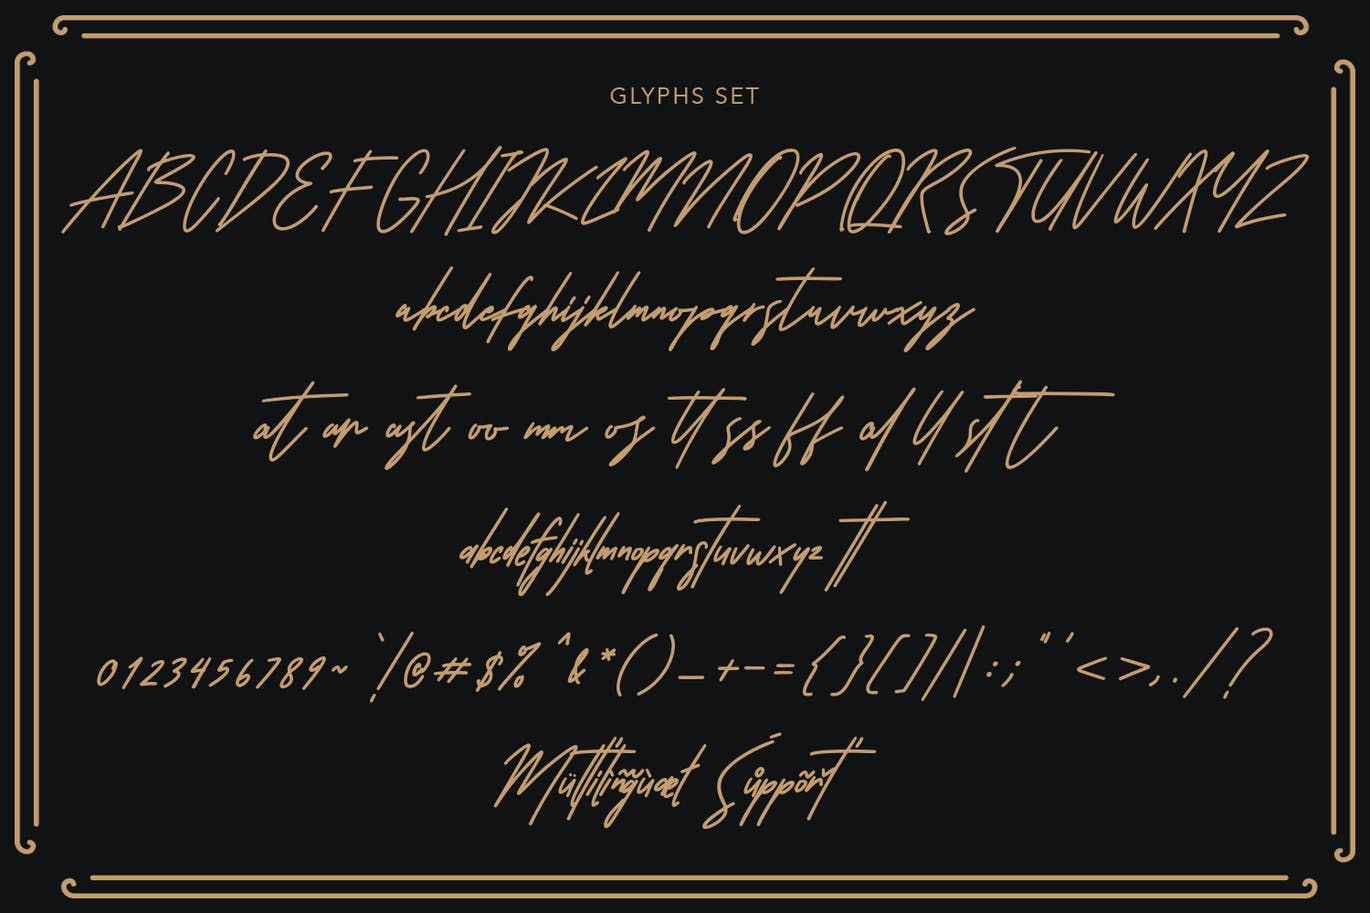 GLYPHS SET
ABCDEFGHIJKLMNOPQRSTUVWXYZ
abcdefghijklmnopqrstuvwxyz
at an ast oo mm os tt ss ff al ll st t
abcdefghijklmnopqrstuvwxyz tt
0123456789~ `!@#$%^&*()_+-={}[]\|:;"'<>,./?